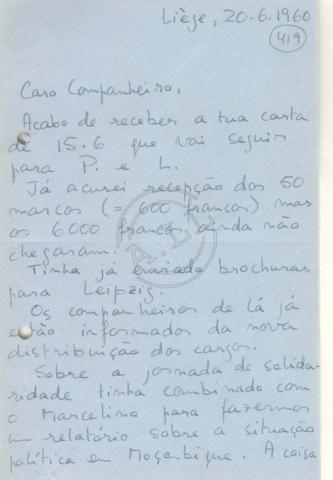 Liège, 20.6.1960
419
Caro Companheiro,
Acabo de receber a tua carta
de 15.6 que vai seguir
para P. e L.
Já acusei recepção dos 50
marcos (= 600 francos) mas
os 6000 francos ainda não
chegaram.
Tinha já enviado brochuras
para Leipzig.
Os companheiros de lá já
estão informados da nova
distribuição dos cargos.
Sobre a jornada de solida-
ridade tinha combinado com
o Marcelino para fazermos
um relatório sobre a situação
política em Moçambique. A coisa